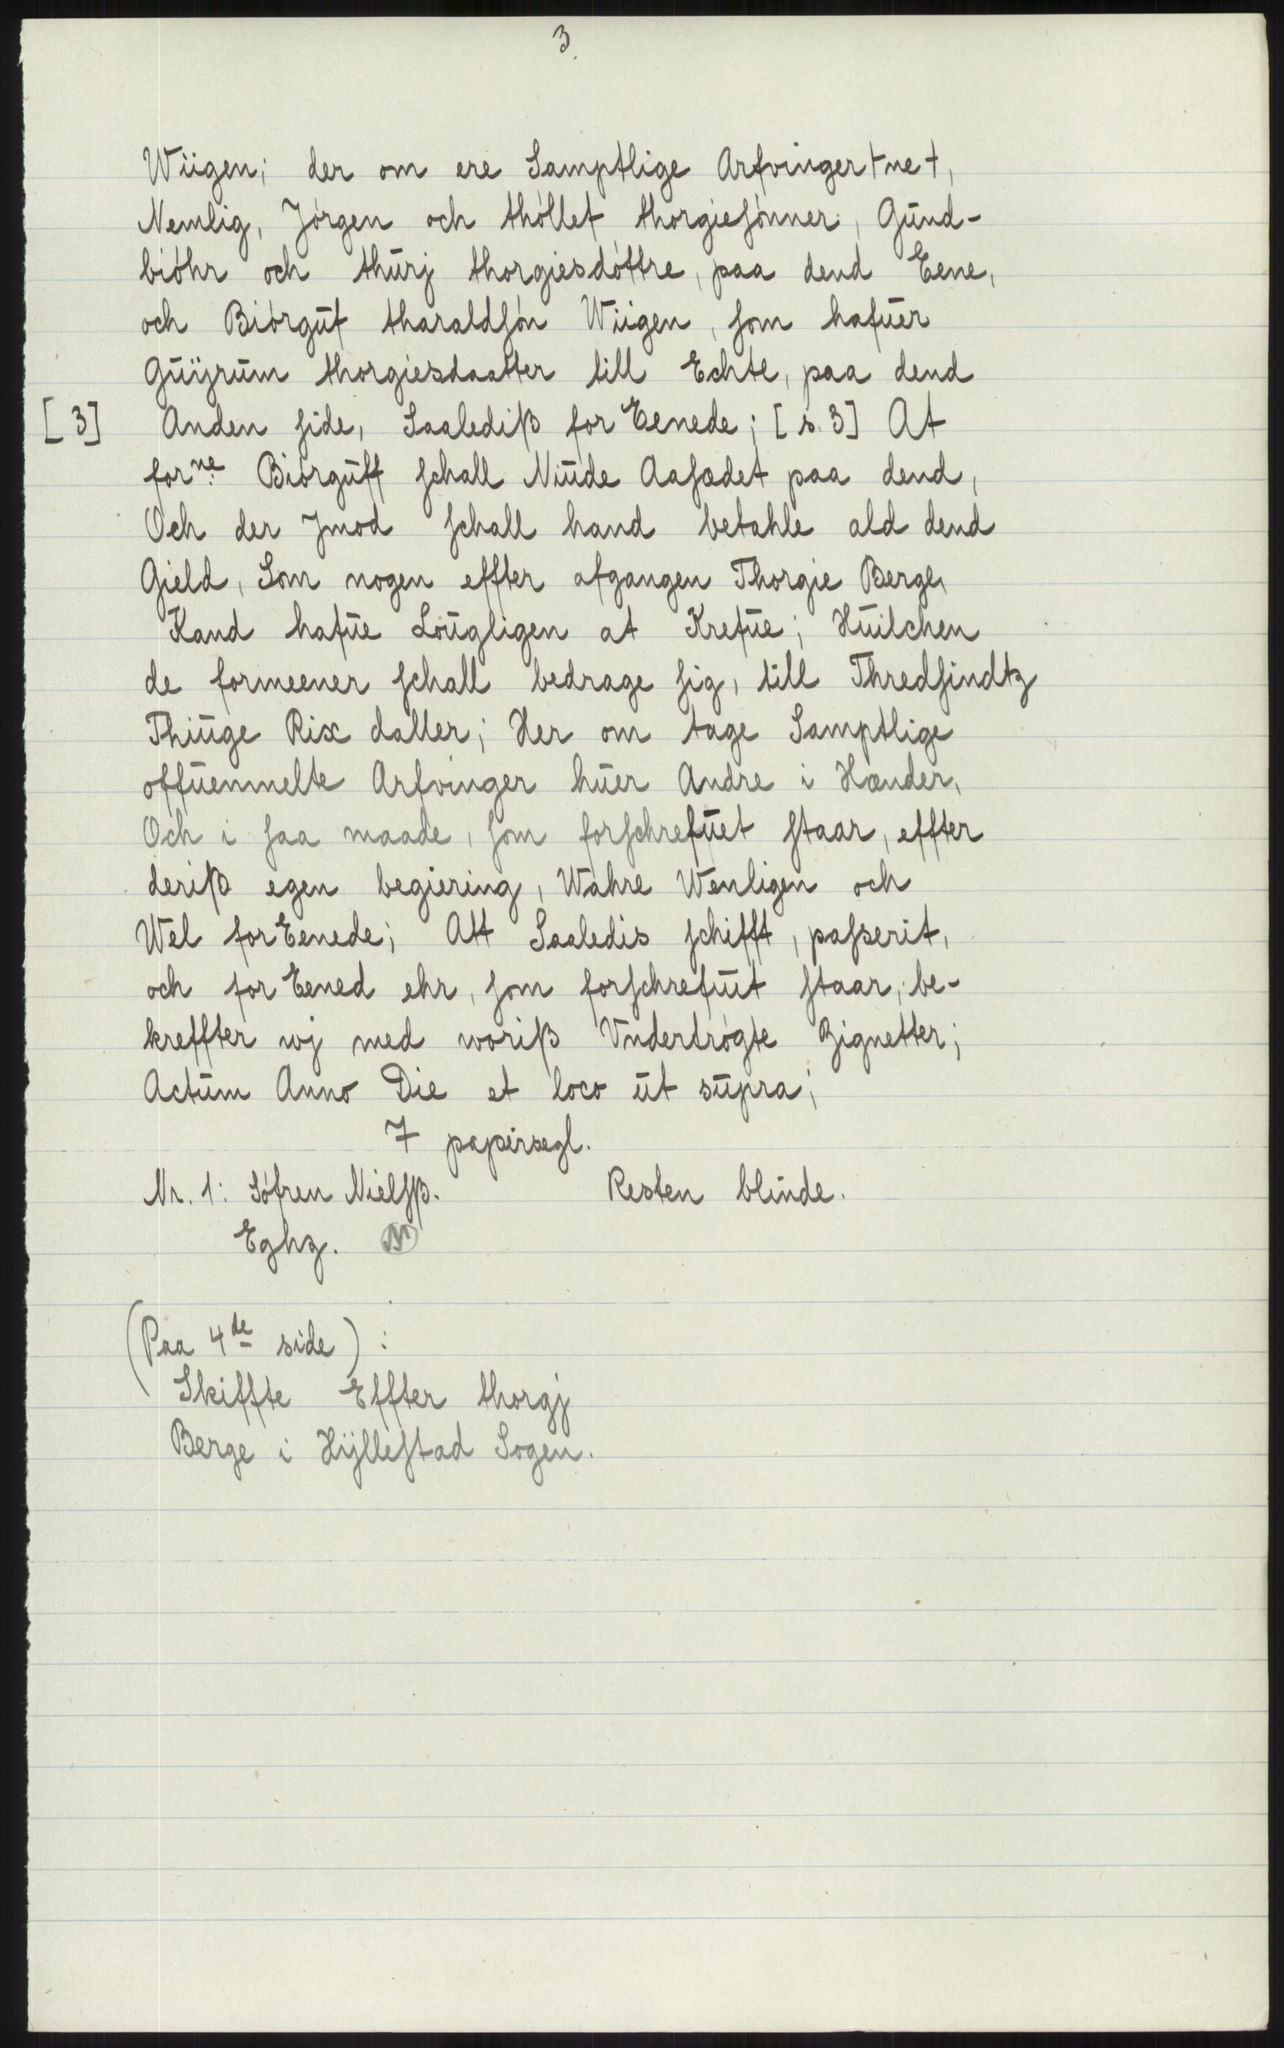 3.
Wiigen; der om ere Samptlige Arfvinger+ne+,
Nemlig, Jörgen och thöllef thorgiesönner, Gund-
biöhr och thurj thorgiesdöttre, paa dend Eene,
och Biörguf tharaldsön Wiigen, som hafuer
Guÿrum thorgiesdaatter till Echte, paa dend
[3] Anden side, Saalediß for Eenede; [s. 3] At
forne Biörguff schall Niude Aasædet paa dend,
Och der Jmod schall hand betahle ald dend
Gield, Som nogen effter afgangen Thorgie Berge,
Kand hafue Lougligen at Krefue; Huilchen
de formeener schall bedrage sig, till Thredsindtz
Thiuge Rix daller; Her om tage Samptlige
offuenmelte Arfvinger huer Andre i Hænder,
Och i saa maade, som forschrefuet staar, effter
deriß egen begiering, Wahre Wenligen och
Wel for Eenede; Att Saaledis schifft, passerit,
och for Eened ehr, som forschrefuit staar, be-
kreffter wj med woriß Vndertrögte Zignetter;
Actum Anno Die et loco ut supra;
7 papirsegl.
Nr. 1: Söfren Nielsß. Resten blinde.
Eghz.
(Paa 4de side):
Skiffte Effter thorgj
Berge i Hÿllestad Sogen.